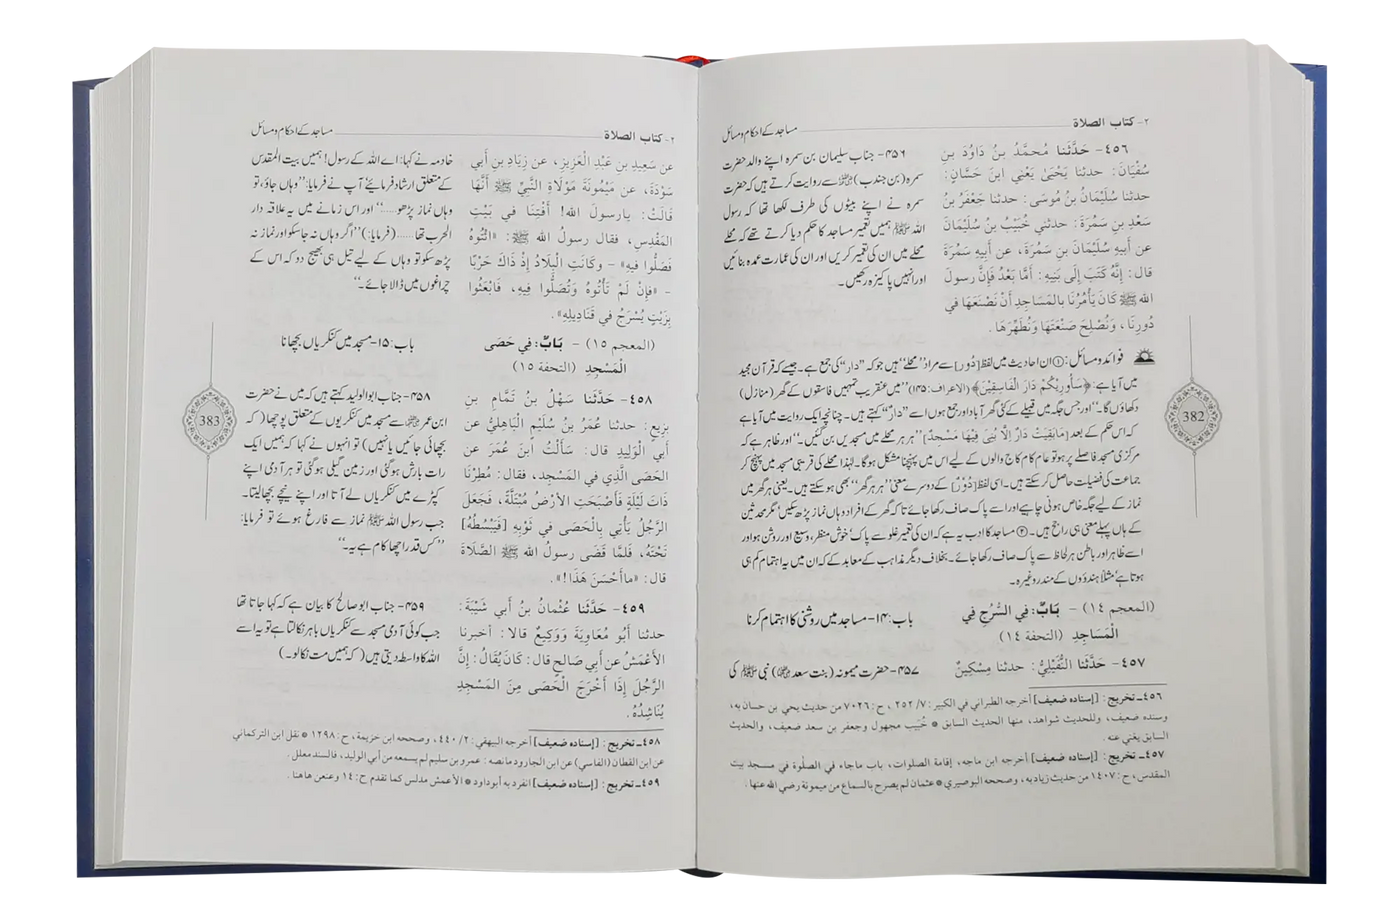 ٢- كتاب الصلاة
مساجد کے احکام و مسائل
٤٥٦- حَدَّثَنا مُحمَّدُ بنُ دَاوُدَ بنِ
سُفْيَانَ: حدثنا يَحْيَىٰ يَعْني ابنَ حَسَّانَ:
حدثنا سُلَيْمانُ بنُ مُوسَى: حدثنا جَعْفَرُ بنُ
سَعْدِ بنِ سَمُرَةَ: حدثني خُبَيْبُ بنُ سُلَيْمَانَ
عن أبِيهِ سُلَيْمَانَ بنِ سَمُرَةَ، عن أبِيهِ سَمُرَةَ
قال: إنَّهُ كَتَبَ إلَى بَنِيهِ: أمَّا بَعْدُ فَإنَّ رسولَ
الله ﷺ كَانَ يَأْمُرُنَا بالمَسَاجِدِ أنْ نَصْنَعَهَا في
دُورِنَا، وَنُصْلِحَ صَنْعَتَهَا وَنُطَهِّرَهَا.
۴۵۶- جناب سلیمان بن سمرہ اپنے والد حضرت
سمرہ (بن جندب) ؓ سے روایت کرتے ہیں کہ حضرت
سمرہ نے اپنے بیٹوں کی طرف لکھا تھا کہ رسول
اللہ ﷺ ہمیں تعمیر مساجد کا حکم دیا کرتے تھے کہ محلے
محلے میں ان کی تعمیر کریں اور ان کی عمارت عمدہ بنائیں
اور انہیں پاکیزہ رکھیں۔
فوائد و مسائل: ① ان احادیث میں لفظ [دُور] سے مراد "محلے" ہیں جو کہ "دار" کی جمع ہے۔ جیسے کہ قرآن مجید
میں آیا ہے: ﴿سَأُورِيكُمْ دَارَ الْفَاسِقِينَ﴾ (الاعراف:۱۴۵) "میں عنقریب تمہیں فاسقوں کے گھر (منازل)
دکھاؤں گا۔" اور جس جگہ میں قبیلے کے کئی گھر آباد اور جمع ہوں اسے "دار" کہتے ہیں۔ چنانچہ ایک روایت میں آیا ہے
کہ اس حکم کے بعد [مَابَقِيَتْ دَارٌ إِلَّا بُنِيَ فِيهَا مَسْجِدٌ] "ہر ہر محلے میں مسجدیں بن گئیں۔" اور ظاہر ہے کہ
مرکزی مسجد فاصلے پر ہو تو عام کام کاج والوں کے لیے اس میں پہنچنا مشکل ہوگا۔ لہٰذا محلے کی قریبی مسجد میں پہنچ کر
جماعت کی فضیلت حاصل کر سکتے ہیں۔ اسی لفظ [دُوْر] کے دوسرے معنی "ہر ہر گھر" بھی ہو سکتے ہیں۔ یعنی ہر گھر میں
نماز کے لیے جگہ خاص ہونی چاہیے اور اسے پاک صاف رکھا جائے تاکہ گھر کے افراد وہاں نماز پڑھ سکیں' مگر محدثین
کے ہاں پہلے معنی ہی راجح ہیں۔ ② مساجد کا ادب یہ ہے کہ ان کی تعمیر غلو سے پاک' خوش منظر' وسیع اور روشن ہو اور
اسے ظاہر اور باطن ہر لحاظ سے پاک صاف رکھا جائے۔ بخلاف دیگر مذاہب کے معابد کے کہ ان میں یہ اہتمام کم ہی
ہوتا ہے' مثلاً ہندوؤں کے مندر وغیرہ۔
(المعجم ١٤) - بَابٌ: فِي السُّرُجِ فِي
الْمَسَاجِدِ (التحفة ١٤)
باب:۱۴- مساجد میں روشنی کا اہتمام کرنا
٤٥٧- حَدَّثَنا النُّفَيْلِيُّ: حدثنا مِسْكِينٌ
۴۵۷- حضرت میمونہ (بنت سعد ؓ) نبی ﷺ کی
٤٥٦ـ تخريج: [إسناده ضعيف] أخرجه الطبراني في الكبير: ٧/ ٢٥٢، ح: ٧٠٢٦ من حديث يحي بن حسان به،
وسنده ضعيف، وللحديث شواهد، منها الحديث السابق * خُبَيب مجهول وجعفر بن سعد ضعيف، والحديث
السابق يغني عنه.
٤٥٧ـ تخريج: [إسناده ضعيف] أخرجه ابن ماجه، إقامة الصلوات، باب ماجاء في الصلٰوة في مسجد بيت
المقدس، ح: ١٤٠٧ من حديث زياد به، وصححه البوصيري * عثمان لم يصرح بالسماع من ميمونة رضي الله عنها.
382
٢- كتاب الصلاة
مساجد کے احکام و مسائل
عن سَعِيدِ بنِ عَبْدِ الْعَزِيزِ، عن زِيَادِ بنِ أبي
سَوْدَةَ، عن مَيْمُونَةَ مَوْلَاةِ النَّبيِّ ﷺ أنَّهَا
قَالَتْ: يارسولَ الله! أفْتِنَا في بَيْتِ
المَقْدِسِ، فقال رسولُ الله ﷺ: «ائْتُوهُ
فَصَلُّوا فيهِ» - وكَانَتِ الْبِلَادُ إذْ ذَاكَ حَرْبًا
- «فإنْ لَمْ تَأْتُوهُ وَتُصَلُّوا فِيهِ، فَابْعَثُوا
بِزَيْتٍ يُسْرَجُ في قَنَادِيلِهِ».
خادمہ نے کہا: اے اللہ کے رسول! ہمیں بیت المقدس
کے متعلق ارشاد فرمائیے' آپ نے فرمایا: "وہاں جاؤ' تو
وہاں نماز پڑھو......" اور اس زمانے میں یہ علاقہ دار
الحرب تھا...... (فرمایا:) "اگر وہاں نہ جا سکو اور نماز نہ
پڑھ سکو تو وہاں کے لیے تیل ہی بھیج دو کہ اس کے
چراغوں میں ڈالا جائے۔"
(المعجم ١٥) - بَابٌ: فِي حَصَى
الْمَسْجِدِ (التحفة ١٥)
باب:۱۵- مسجد میں کنکریاں بچھانا
٤٥٨- حَدَّثَنا سَهْلُ بنُ تَمَّامِ بنِ
بَزِيعٍ: حدثنا عُمَرُ بنُ سُلَيْمٍ الْبَاهِلِيُّ عن
أبي الْوَلِيدِ قال: سَأَلْتُ ابنَ عُمَرَ عن
الحَصَى الَّذِي في المَسْجِدِ، فقال: مُطِرْنَا
ذَاتَ لَيْلَةٍ فَأصْبَحَتِ الأرْضُ مُبْتَلَّةً، فَجَعَلَ
الرَّجُلُ يَأْتِي بِالْحَصَى في ثَوْبِهِ [فَيَبْسُطُهُ]
تَحْتَهُ، فَلمَّا قَضَى رسولُ الله ﷺ الصَّلَاةَ
قال: «ماأَحْسَنَ هَذَا!».
۴۵۸- جناب ابوالولید کہتے ہیں کہ میں نے حضرت
ابن عمر ؓ سے مسجد میں کنکریوں کے متعلق پوچھا (کہ
بچھائی جائیں یا نہیں) تو انہوں نے کہا کہ ہمیں ایک
رات بارش ہوگئی اور زمین گیلی ہوگئی تو ہر آدمی اپنے
کپڑے میں کنکریاں لے آتا اور اپنے نیچے بچھا لیتا۔
جب رسول اللہ ﷺ نماز سے فارغ ہوئے تو فرمایا:
"کس قدر اچھا کام ہے یہ۔"
٤٥٩- حَدَّثَنا عُثْمانُ بنُ أبي شَيْبَةَ:
حدثنا أبُو مُعَاوِيَةَ وَوَكِيعٌ قالا: أخبرنا
الأعمَشُ عن أبي صَالحٍ قال: كَانَ يُقَالُ: إنَّ
الرَّجُلَ إذَا أخْرَجَ الْحَصَى مِنَ المَسْجِدِ
يُنَاشِدُهُ.
۴۵۹- جناب ابوصالح کا بیان ہے کہ کہا جاتا تھا
جب کوئی آدمی مسجد سے کنکریاں باہر نکالتا ہے تو یہ اسے
اللہ کا واسطہ دیتی ہیں (کہ ہمیں مت نکالو۔)
٤٥٨ـ تخريج: [إسناده ضعيف] أخرجه البيهقي: ٢/ ٤٤٠، وصححه ابن خزيمة، ح: ١٢٩٨ * نقل ابن التركماني
عن ابن القطان (الفاسي) عن ابن الجارود مانصه: عمر بن سليم لم يسمعه من أبي الوليد، فالسند معلل.
٤٥٩ـ تخريج: [إسناده ضعيف] انفرد به أبوداود * الأعمش مدلس كما تقدم ح: ١٤ وعنعن هاهنا.
383